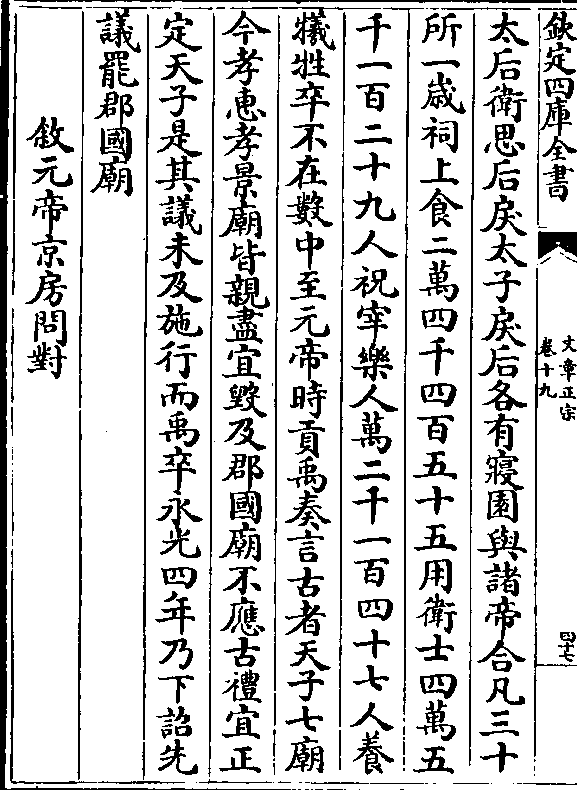 欽定四庫全書
文章正宗
卷十九
四十七
太后衛思后戾太子戾后各有寢園與諸帝合凡三十
所一歳祠上食二萬四千四百五十五用衛士四萬五
千一百二十九人祝宰樂人萬二千一百四十七人養
犧牲卒不在數中至元帝時貢禹奏言古者天子七廟
今孝惠孝景廟皆親盡宜毀及郡國廟不應古禮宜正
定天子是其議未及施行而禹卒永光四年乃下詔先
議罷郡國廟
敘元帝京房問對